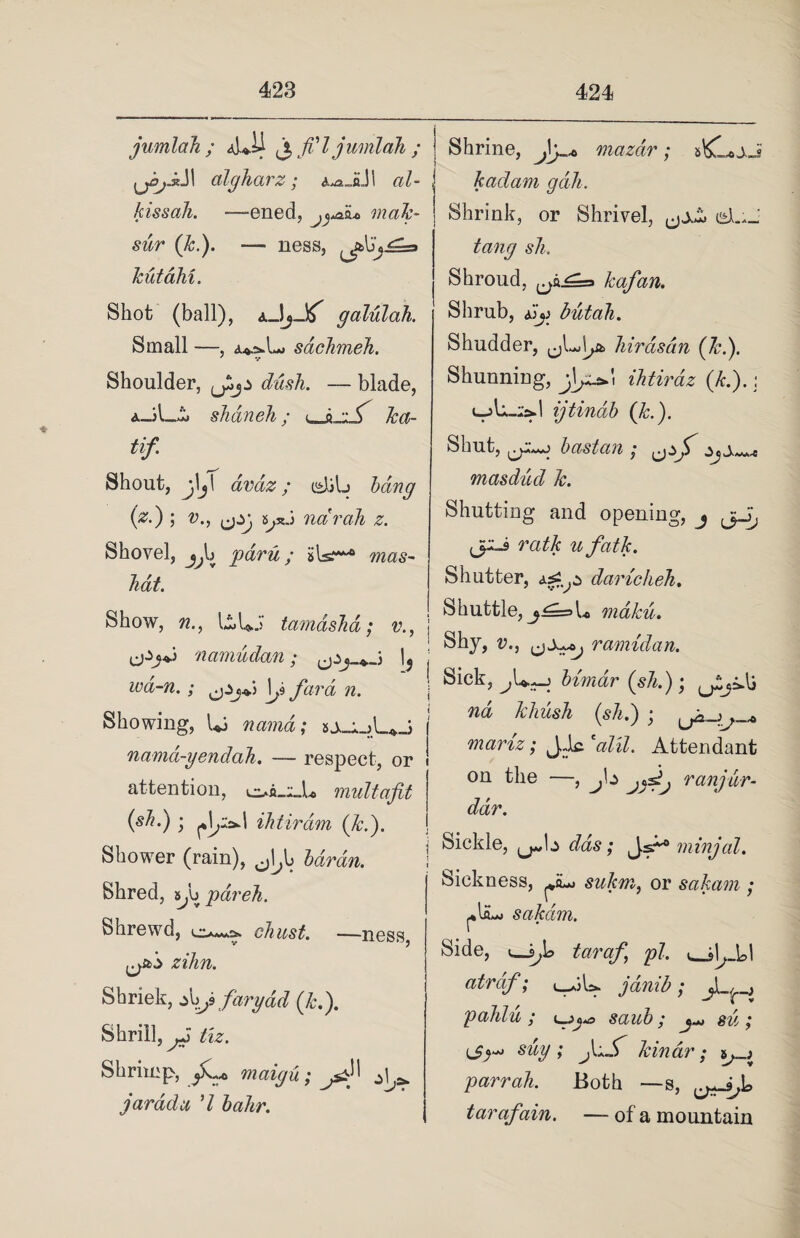 423
jumlah ; في الجمله fi'l jumlah ;
الغرض algharz ; القصه al-
kissah. —ened, مقصور mak-
súr (k.). — ness, کوتاهی
kútáhí.
Shot (ball), گلوله galúlah.
Small —, ساچمه sáchmeh.
Shoulder, دوش dúsh. — blade,
شانه sháneh ; کتف ka-
tif.
Shout, آواز áváz ; بانگ báng
(z.) ; v., نعره زدن na'rah z.
Shovel, پارو párú ; مسحاه mas-
hát.
Show, n., تماشا tamáshá ; v.,
نمودن namúdan ; وا نمودن
wá-n. ; فرا نمودن fará n.
Showing, نما namá ; نماینده
namá-yendah. — respect, or
attention, ملتفت multafit
(sh.) ; احترام ihtirám (k.).
Shower (rain), باران bárán.
Shred, پاره páreh.
Shrewd, چست chust. —ness,
ذهن zihn.
Shriek, فریاد faryád (k.).
Shrill, تیز tíz.
Shrimp, میگو maigú ; جراد البحر
jarádu 'l bahr.
424
Shrine, مزار mazár ; قدمگاه
kadam gáh.
Shrink, or Shrivel, تنگ شدن
tang sh.
Shroud, کفن kafan.
Shrub, بوته bútah.
Shudder, هراسان hirásán (k.).
Shunning, احتراز ihtiráz (k.). ;
اجتناب ijtináb (k.).
Shut, بستن bastan ; مسدود کردن
masdúd k.
Shutting and opening, رتق و
فتق ratk u fatk.
Shutter, دریچه darícheh.
Shuttle, ماکو mákú.
Shy, v., رمیدن ramídan.
Sick, بیمار bímár (sh.) ; ناخوش
ná khúsh (sh.) ; مریض
maríz ; علیل 'alíl. Attendant
on the —, رنجوردار ranjúr-
dár.
Sickle, داس dás ; منجل minjal.
Sickness, سقم sukm, or sakam ;
سقام sakám.
Side, طرف taraf, pl. اطراف
atráf ; جانب jánib ; پهلو
pahlú ; صوب saub ; سو sú ;
سوی súy ; کنار kinár ; پره
parrah. Both —s, طرفین
tarafain. — of a mountain